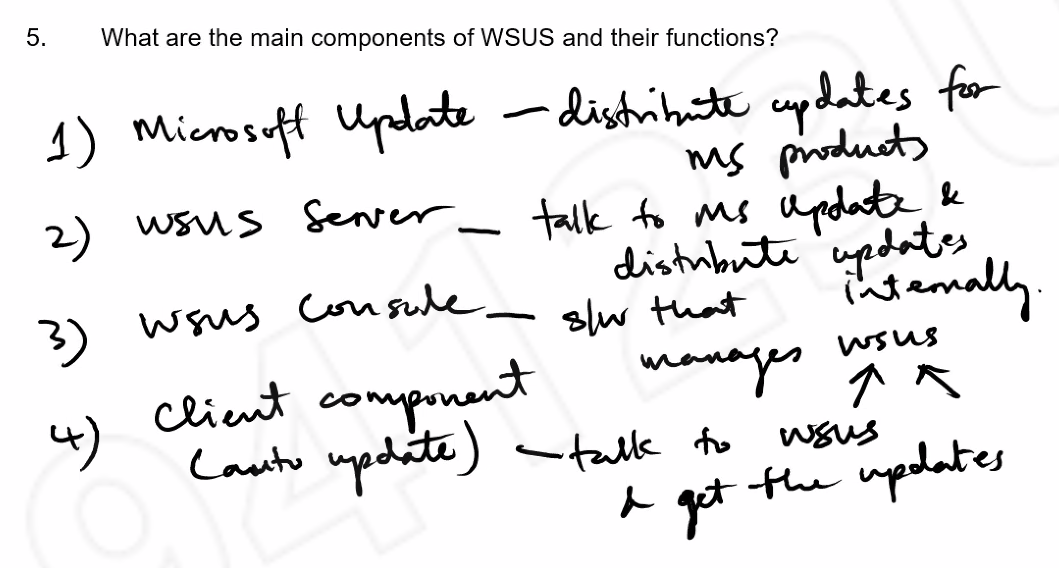 5. What are the main components of WSUS and their functions?
1) Microsoft Update — distribute updates for
MS products
2) WSUS Server — talk to MS Update &
distribute updates
internally.
3) WSUS Console — s/w that
manages WSUS
4) Client component
(auto update) — talk to WSUS
& get the updates